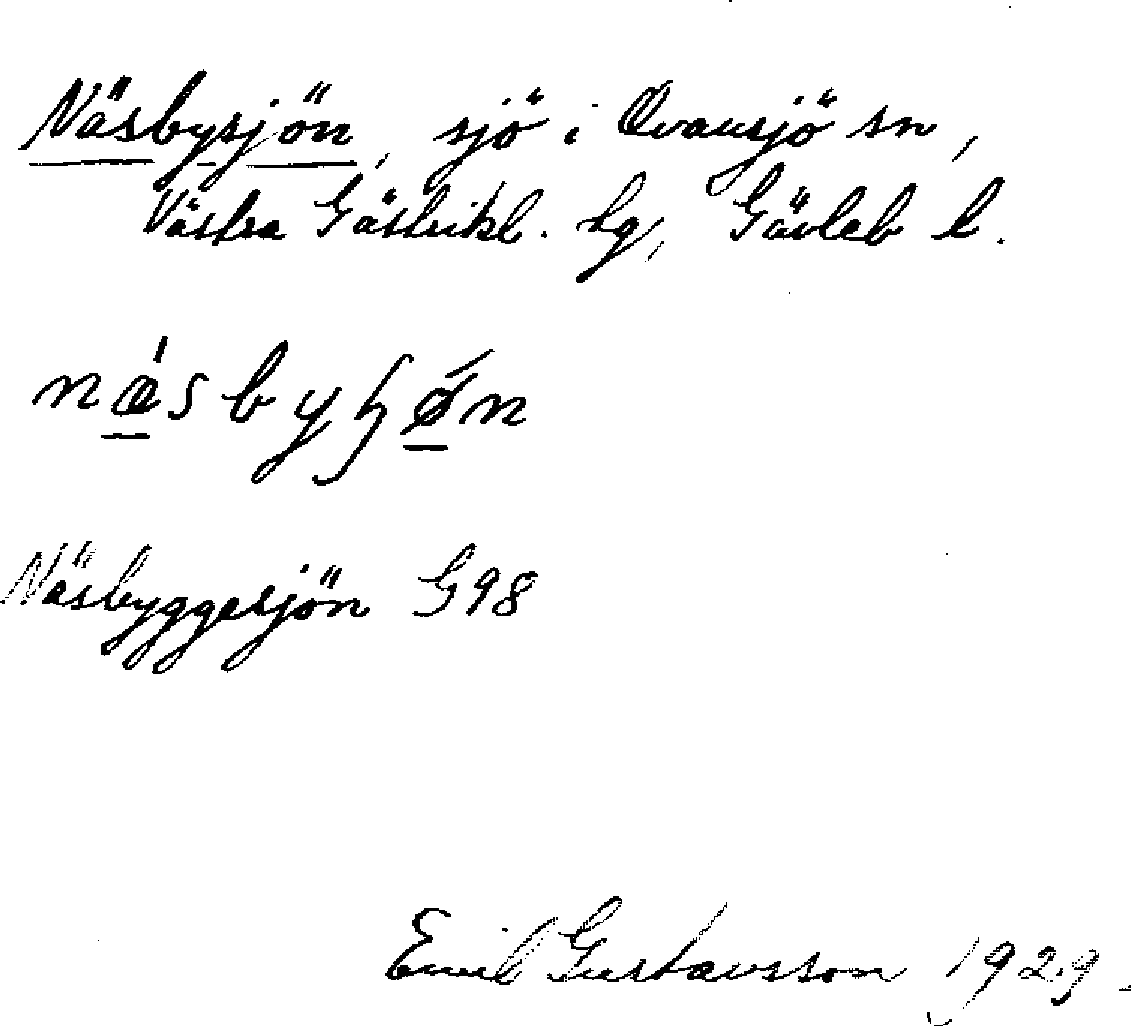 Näsbysjön, sjö i Ovansjö sn,
Västra Gästrikl. hg, Gävleb l.
næsbyʃøn
Näsbyggesjön G98
Emil Gustavsson 1929.